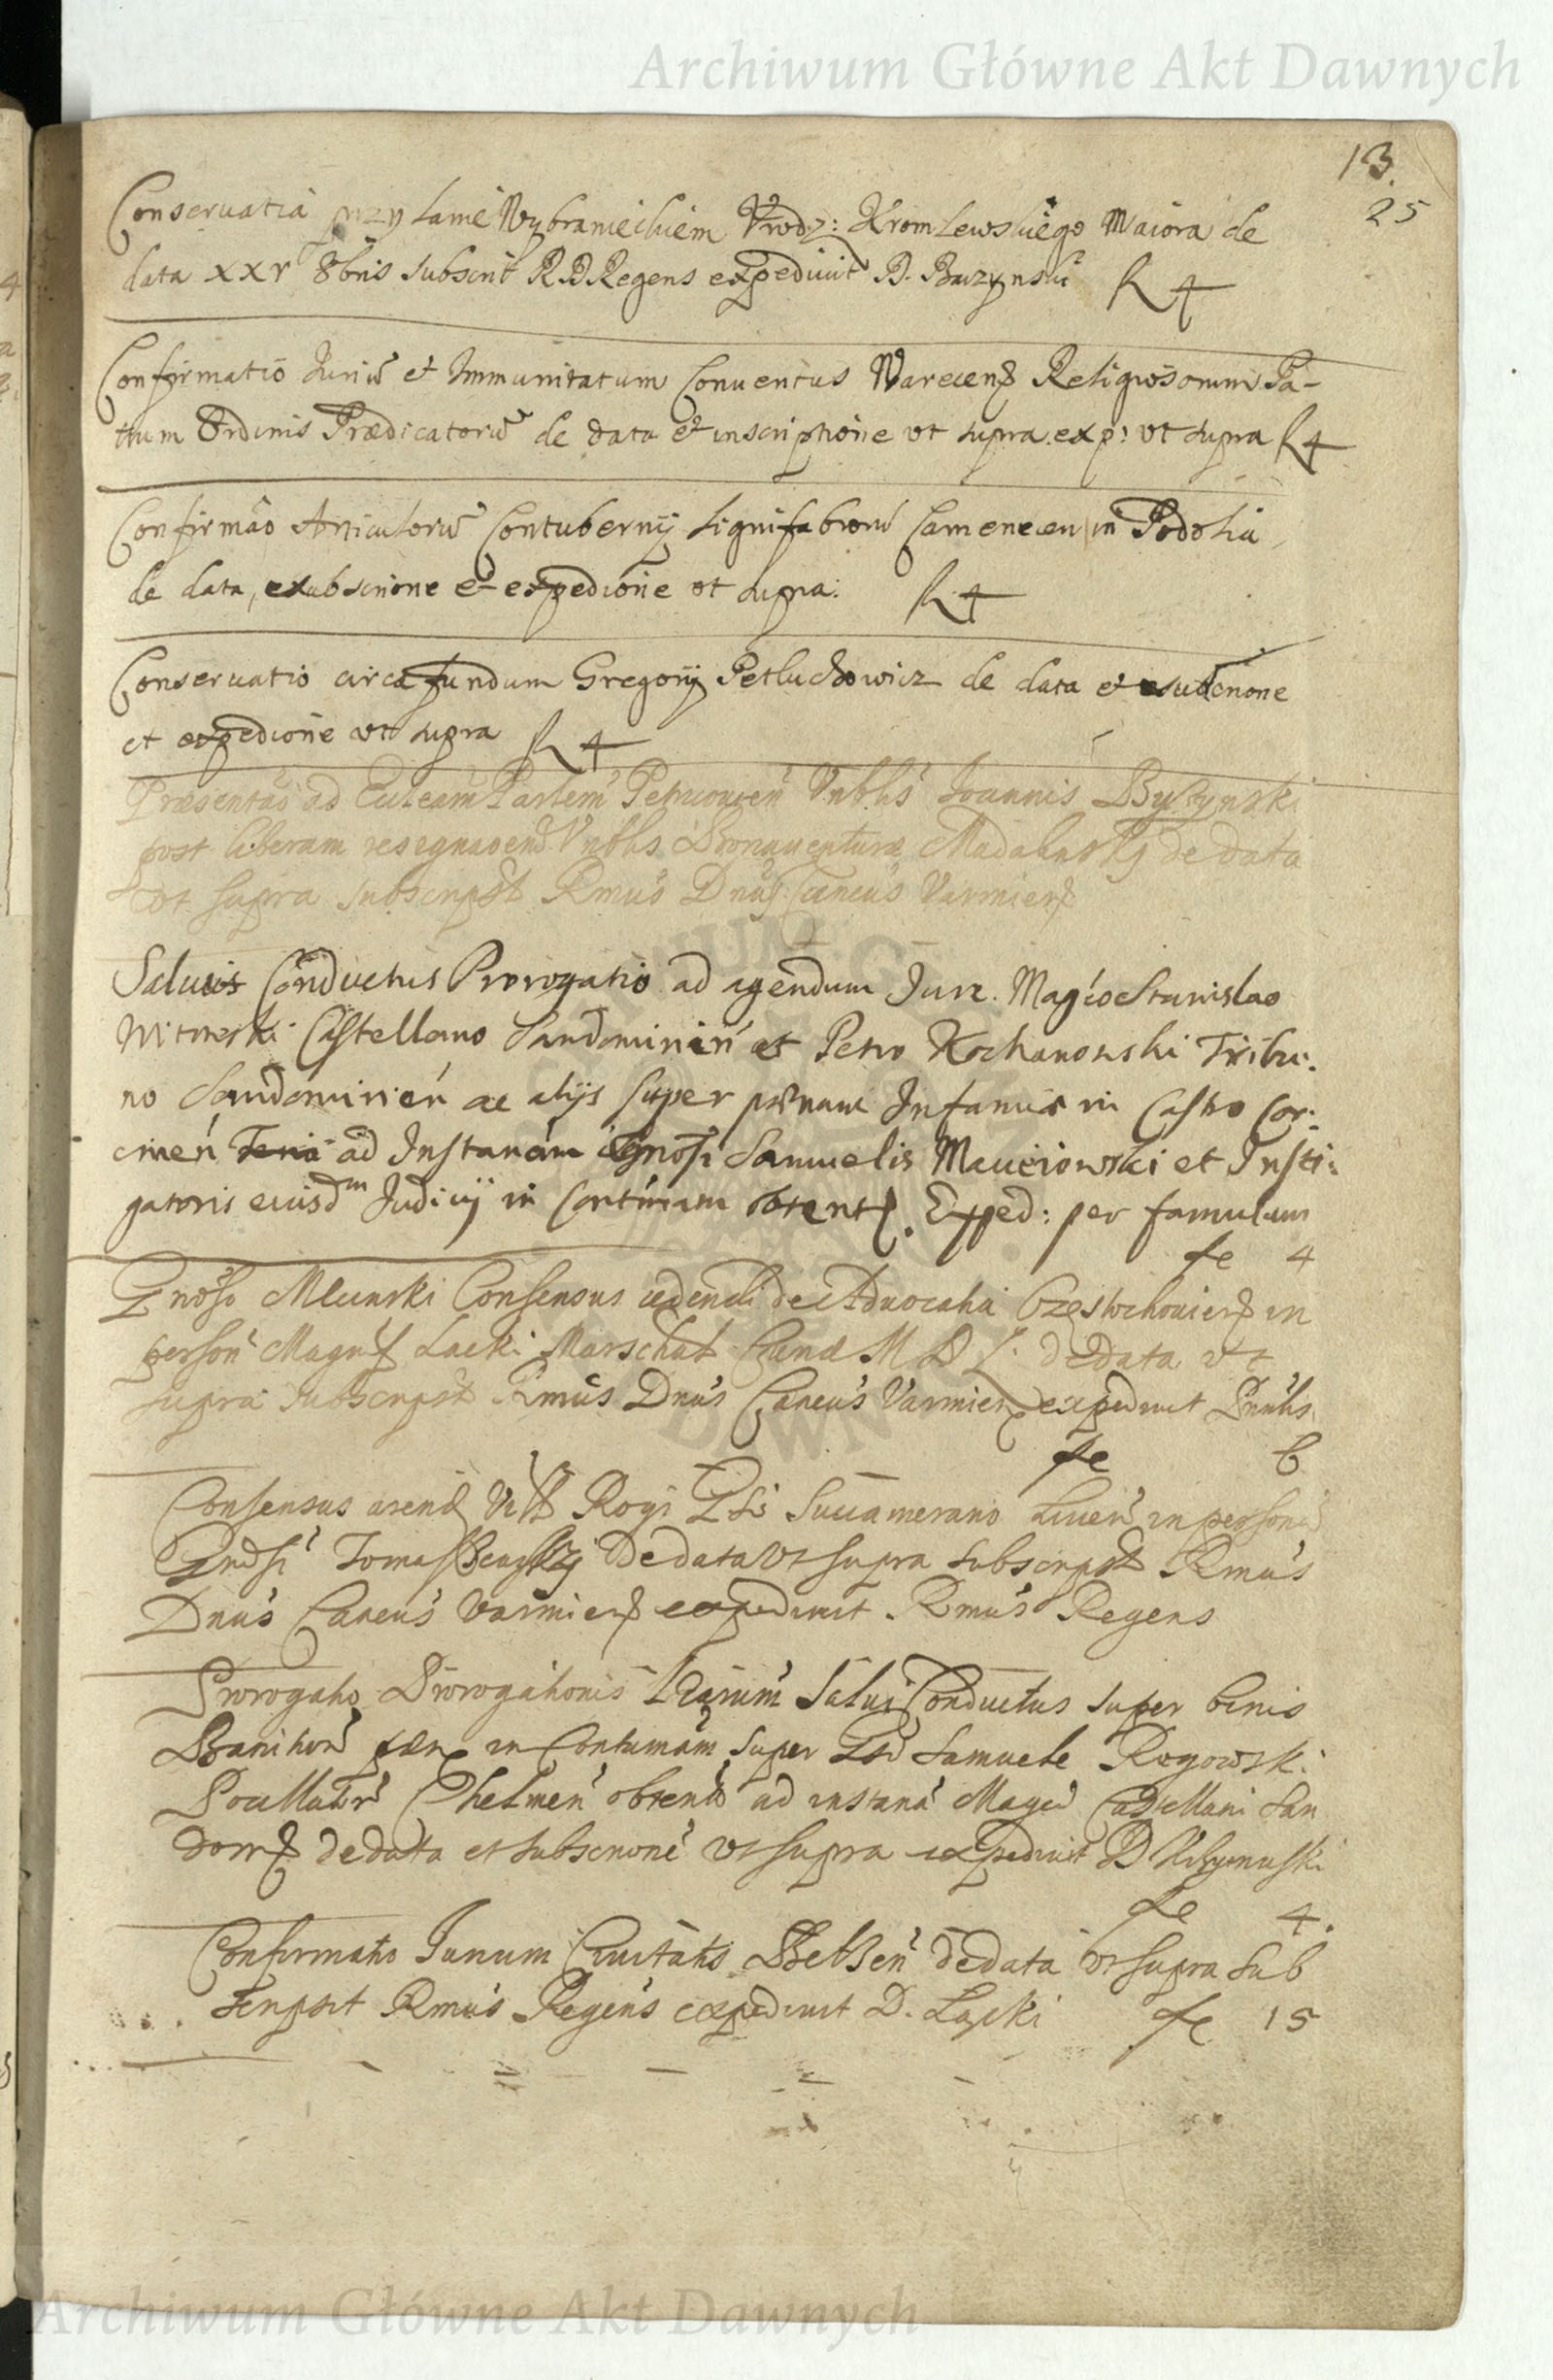 Archiwum Główne Akt Dawnych
13.
25
Conseruatia przy Łanie Wybranieckiem Vrodz: Kromlewskiego Maiora de
data xxv 8bris subscrit R.D.Regens expediuit D. Burzynski R 4
Confirmatio Iuriũ et Immunitatum Conuentus Warecens Religiosorum Pa-
trum Ordinis Prædicatorũ de data et inscriptione vt supra exp: vt supra R 4
Confirmão Articulorũ Contubernij Lignifabrorũ Camenecen in Podolia
de data, exubscrione et expedione vt supra: R 4
Conseruatio circa fundum Gregorij Petluchowicz de data et
et expedione vt supra R 4
Præsentaõ ad Ecclesiam Vnbłis Ioannis Buszynski
post liberam Vnblis Bonauenturæ Madalinskÿ de data
vt supra subscripsit Rmus Dnus Cancus Varmien
Saluus Conductus Prorogatio ad agendum Jure. Magco Stanislao
Witowski Castellano Sandomirien et Petro Kochanowski Tribu:
no Sandomirien ac alijs super pœnam Infamiæ in Castro Cor:
cinen ad Instanam Gnosi Samuelis Maciiowski et Insti:
gatoris eiusdm Judicij in Contumam obtent. Exped: per famulum
fe 4
Gnoso Mlunski Consensus cedendi de Aduocatia Częstochouien in
person Magnif Lacki Marschal Curiæ M D L. de data vt
supra subscripsit Rmus Dnus Cancus Varmien expediuit
fe 6
Consensus Succamerano in personã
Gnosi de data vt supra subscripsit Rmus
Dnus Cancus Varmien expediuit Rmus Regens
Prorogatio Prorogationis Lrarum Salui Conductus super binis
Banition pœn in Contumam super Gso Samuele Rogowski
Pocillator Chelmen obtent ad instanã Magci Castellani San
dom de data et subscrione vt supra expediuit D
fe 4.
Confirmatio Iurium Ciuitatis Belzen de data vt supra sub
scripsit Rmus Regens expediuit D. Łącki fe 15
Archiwum Główne Akt Dawnych